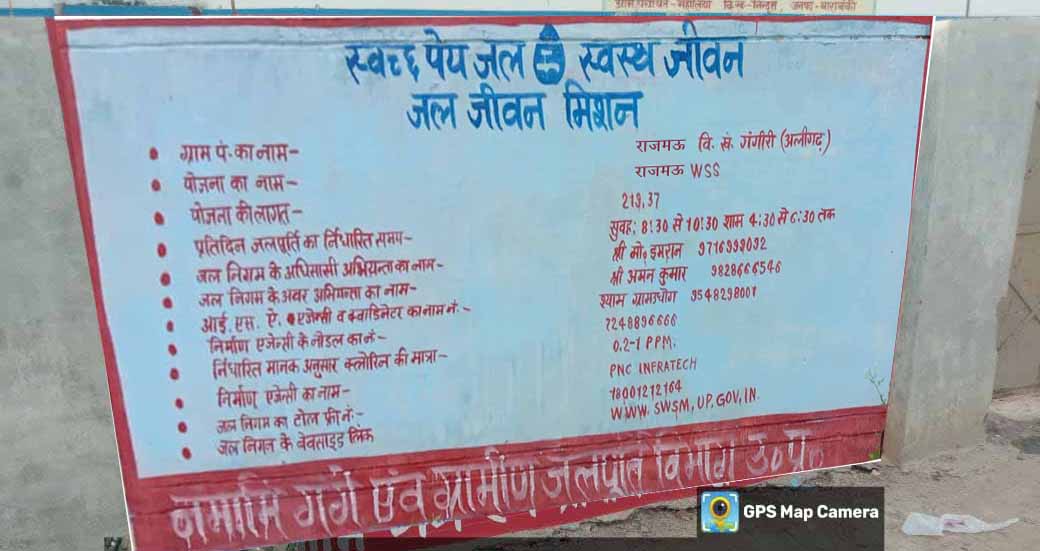 ग्राम पंचायत-महोलिया वि०ख०-निन्दूरा, जनपद-बाराबंकी
स्वच्छ पेय जल स्वस्थ जीवन
जल जीवन मिशन
• ग्राम पं. का नाम- राजमऊ वि. खं. गंगीरी (अलीगढ़)
• योजना का नाम- राजमऊ WSS
• योजना की लागत- 219,37
• प्रतिदिन जलपूर्ति का र्निधारित समय- सुवह; 8:30 से 10:30 शाम 4:30 से 6:30 तक
• जल निगम के अधिसासी अभियन्ता का नाम- श्री मो० इमरान 9716999092
• जल निगम के अवर अभियन्ता का नाम- श्री अमन कुमार 9828666546
• आई. एस. ऐ. एजेन्सी व क्वाडिनेटर का नाम नं:- श्याम ग्रामउधोग 9548298001
• निर्माण एजेन्सी के नोडल का नं- 7248896666
• र्निधारित मानक अनुसार क्लोरिन की मात्रा- 0.2-1 PPM.
• निर्माण एजेन्सी का नाम- PNC INFRATECH
• जल निगम का टोल फ्री नं:- 18001212164
• जल निगम के वेवसाइड लिंक WWW. SWSM, UP. GOV, IN.
नमामि गंगे एंव ग्रामीण जलपूर्ति विभाग उ० प्र०
GPS Map Camera